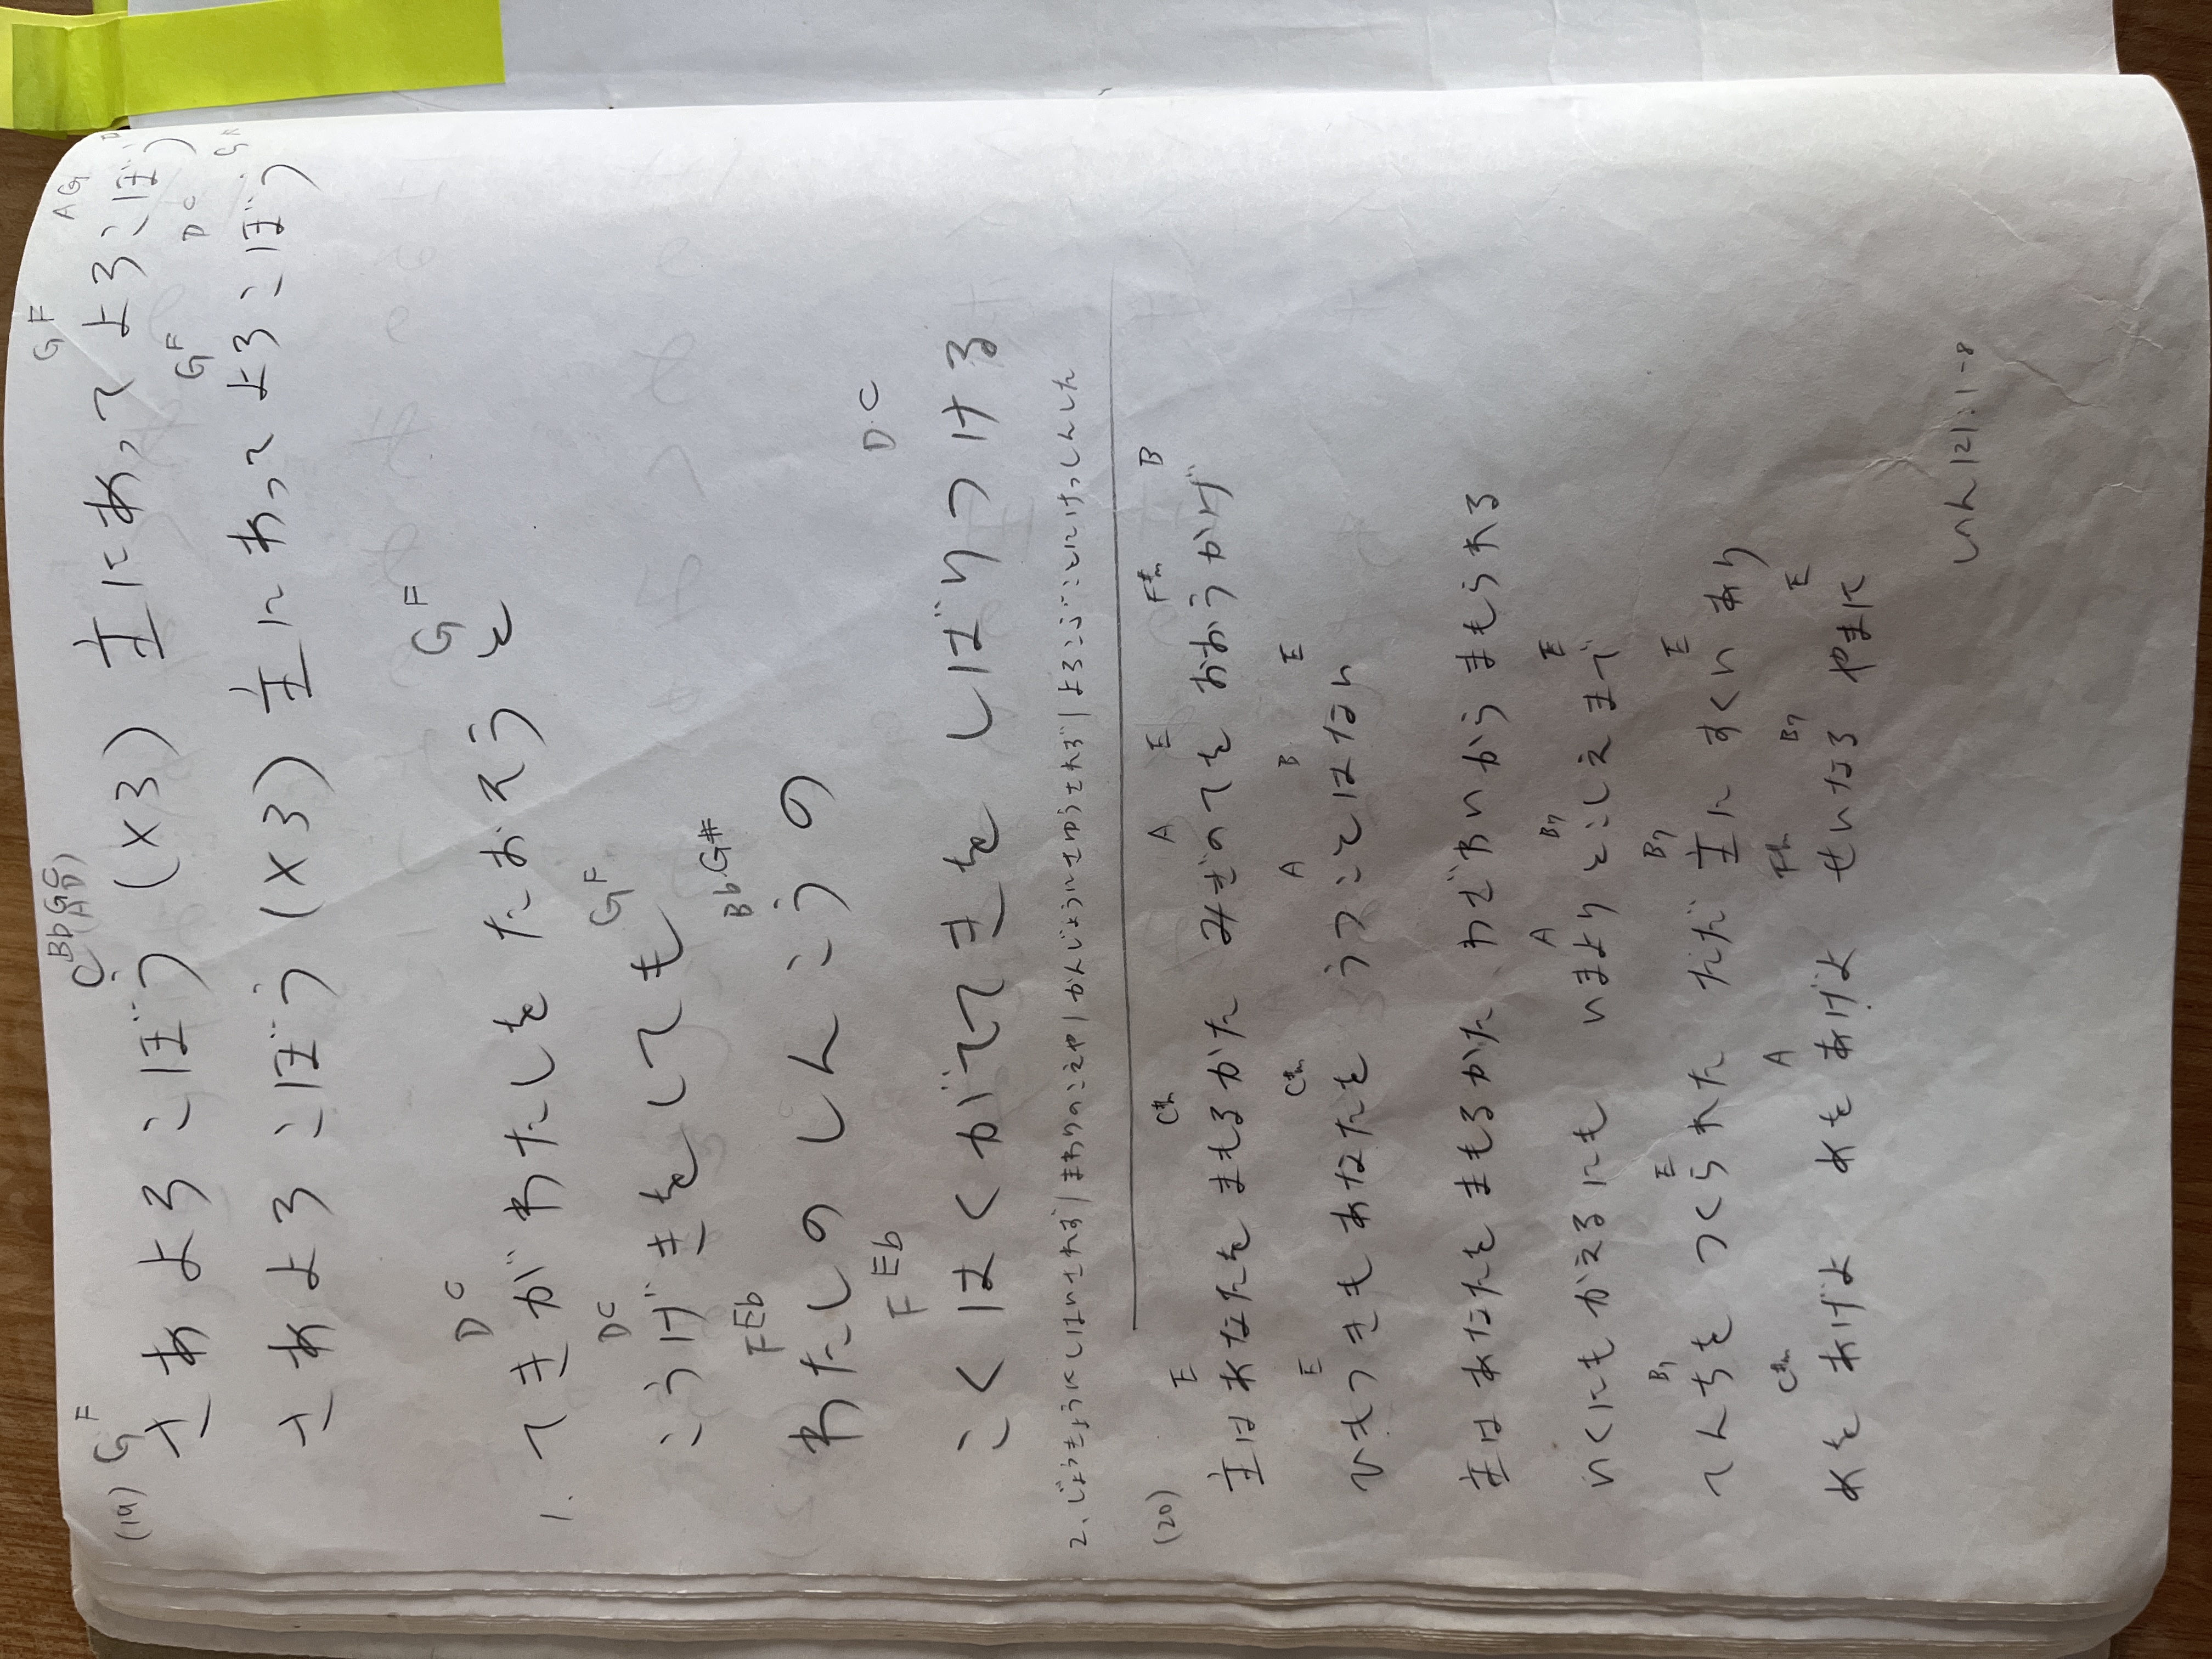 (19) G F C Bb G C (A D) G F A G D
さあ よろこぼう (×3) 主にあって よろこぼう
G F D C G F
さあ よろこぼう (×3) 主にあって よろこぼう
D C G F
1. てきが わたしを たおそうと
D C G F
こうげきをしても
F Eb Bb G#
わたしの しんこうの
F Eb D C
こくはくが てきを しばりつける
2. じょうきょうにしはいされず / まわりのこえや / かんじょうにさゆうされず / よろこぶことにけっしんした
(20) E C#m A E F#m B
主はあなたを まもるかた みぎのてを おおうかげ
E C#m A B E
ひもつきも あなたを うつことはない
主はあなたを まもるかた わざわいから まもられる
A B7 E
いくにも かえるにも いまより とこしえまで
B7 E B7 E
てんちを つくられた ただ 主に すくいあり
C#m A F#m B7 E
めを あげよ めを あげよ せいなる やまに
しへん 121:1-8